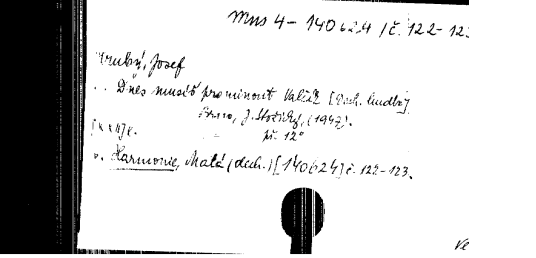 Mus 4 - 140624 / č. 122-123
Hrubý, Josef
Dnes musíš prominout Valčík [Dech. hudba].
Brno, J. Stožický, (1947).
př. 12°
v. Harmonie, Malá (dech.) [140624] č. 122-123.
Ve